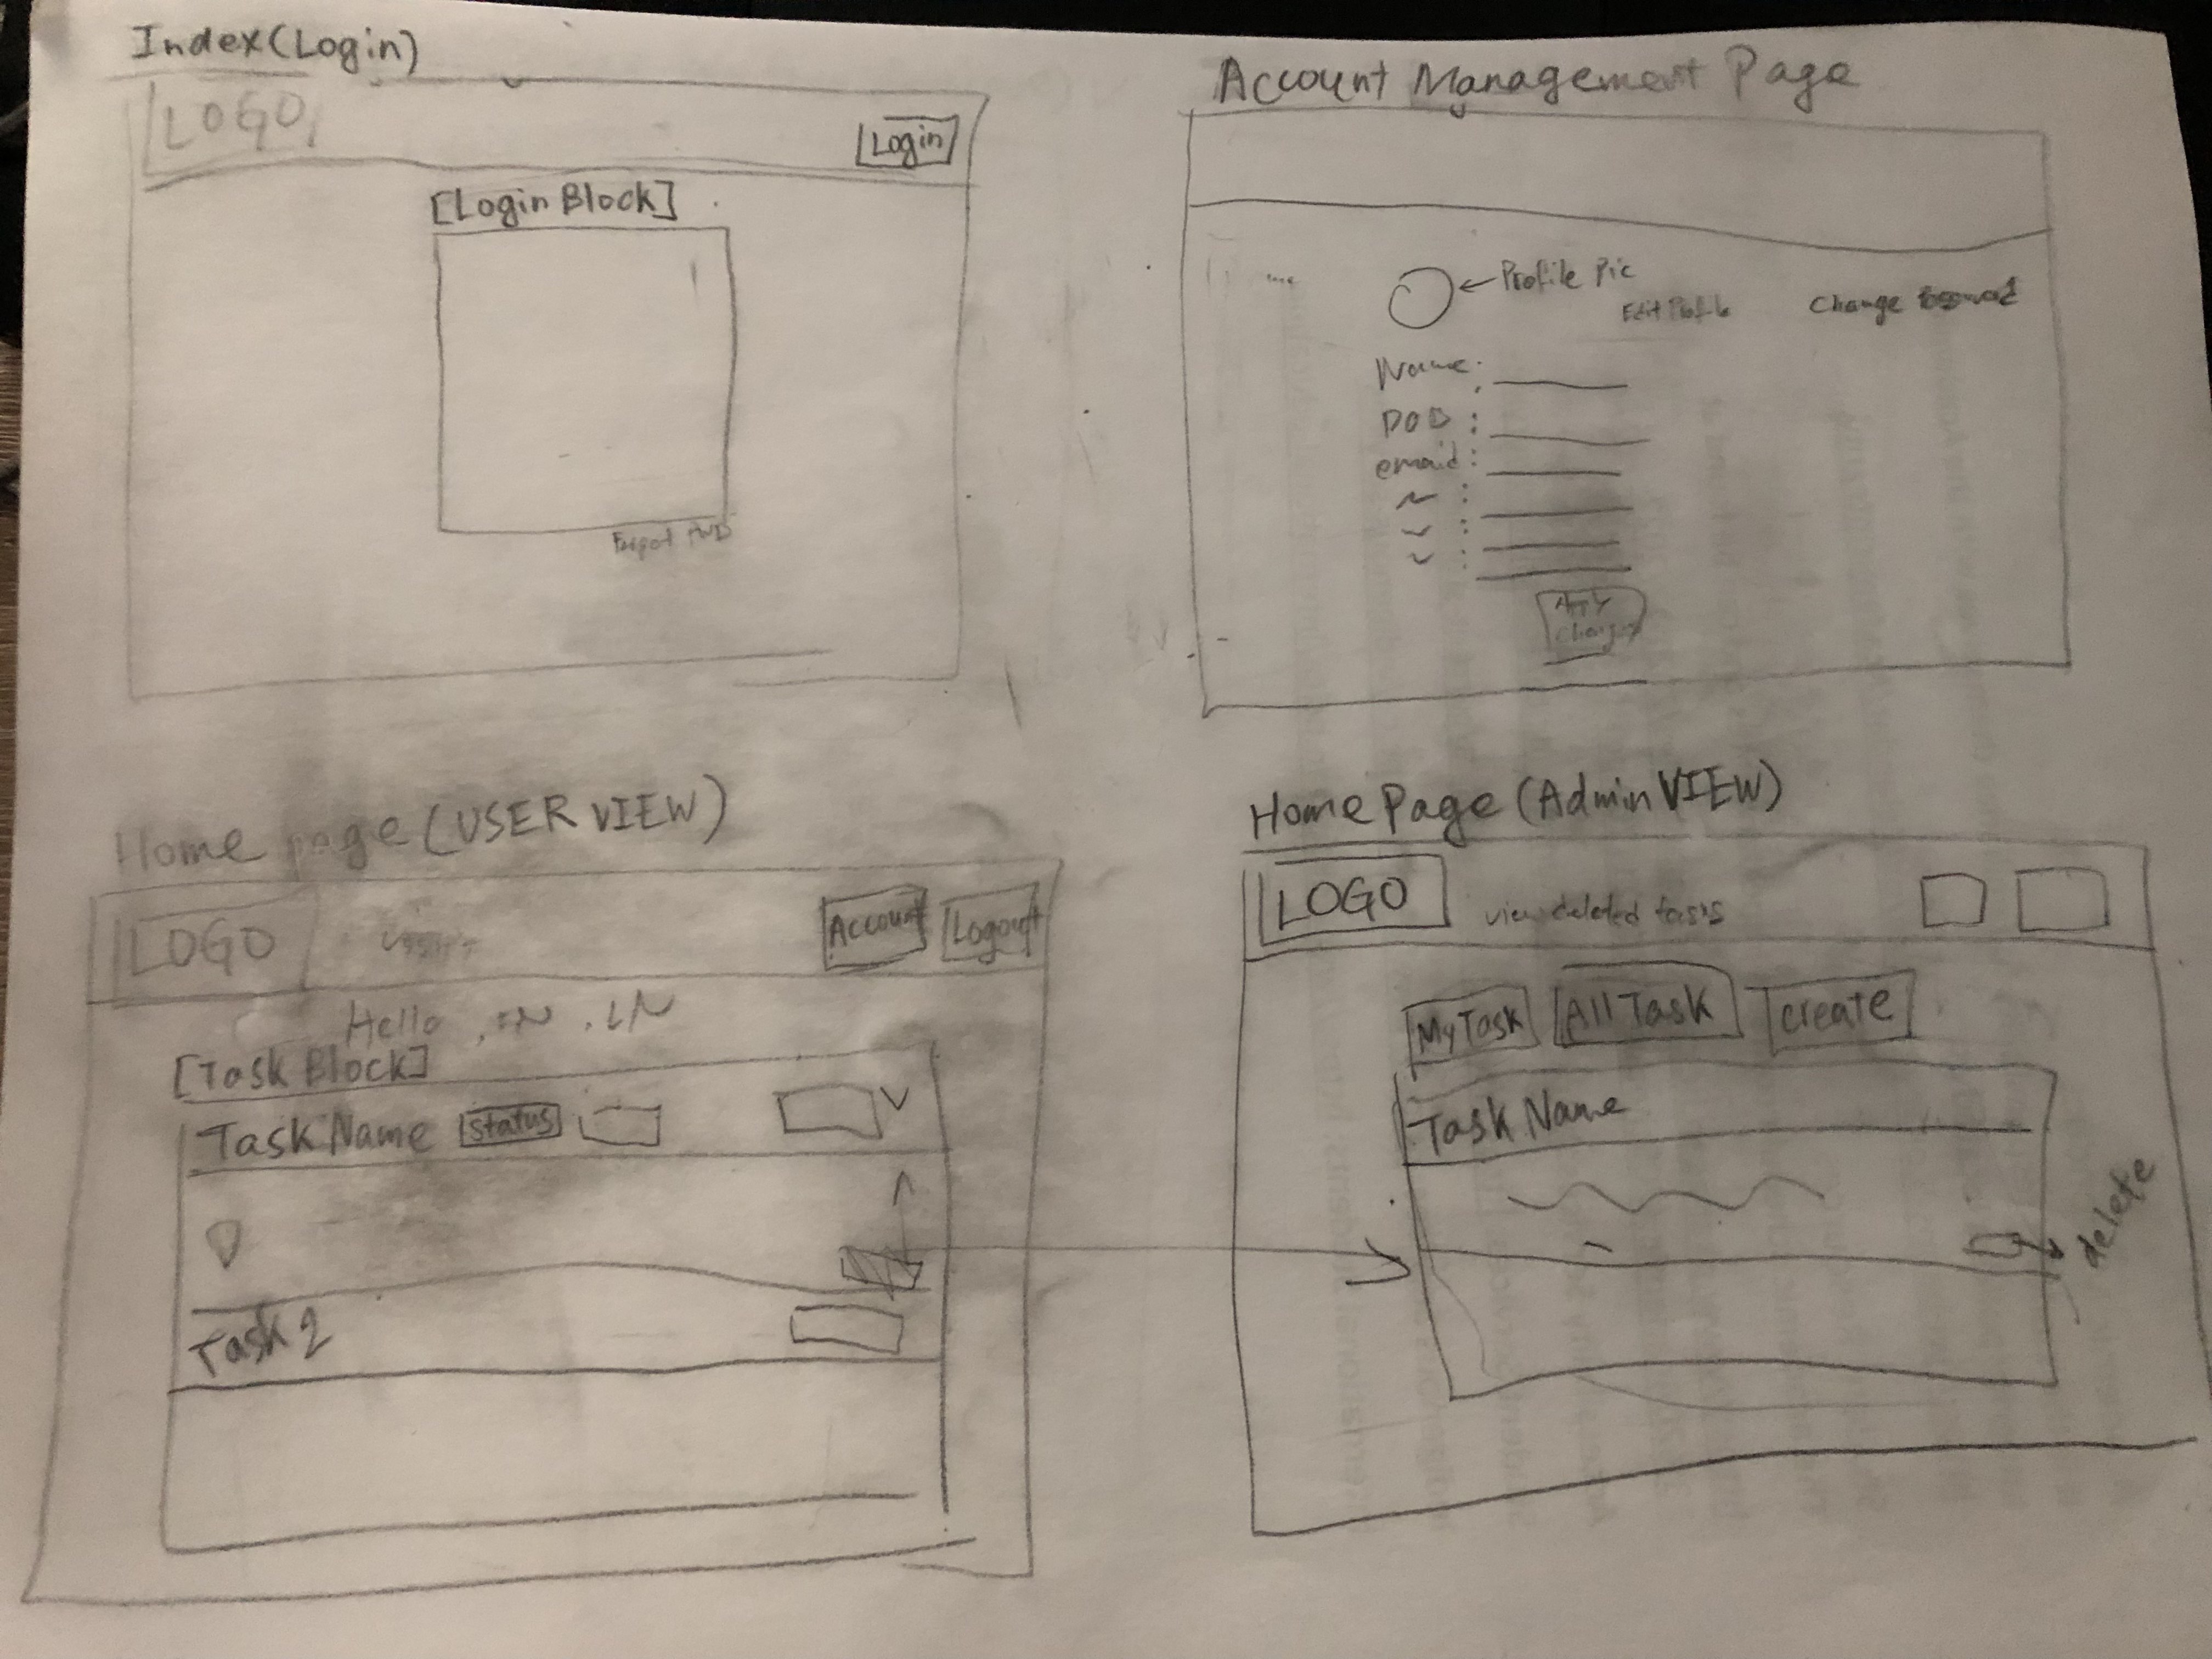 Index(Login)
LOGO
Login
[Login Block]
Forgot PWD
Account Management Page
Profile Pic
Edit Profile
Change Password
Name:
DOB :
email :
Apply
Changes
Home page (USER VIEW)
LOGO
Account
Logout
Hello
[Task Block]
Task Name
status
Task 2
Home Page (Admin VIEW)
LOGO
view deleted tasks
My Task
All Task
create
Task Name
delete